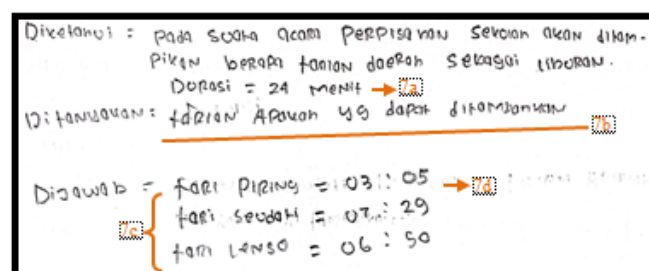 Diketahui : pada suatu acara perpisahan sekolah akan ditam-
pilkan berapa tarian daerah sebagai hiburan.
Dorasi = 24 menit 7a
Ditanyakan : tarian Apakah yg dapat ditambahkan
7b
Dijawab = tari piring = 03 : 05 7d
tari seudati = 07 : 29
7c
tari lenso = 06 : 50